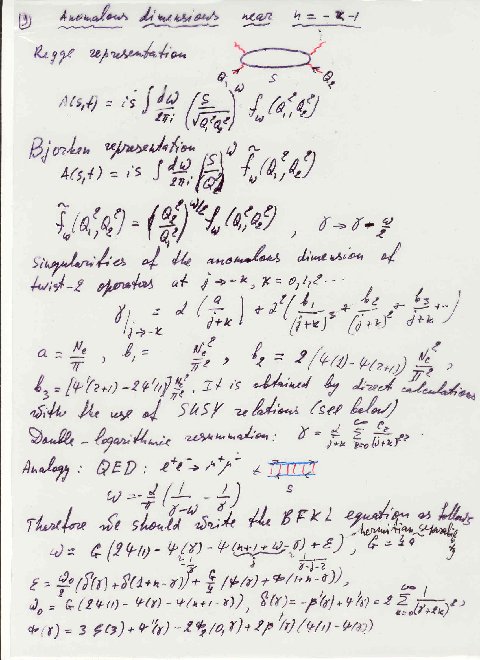 9) Anomalous dimensions near n = -x-1
Regge representation
Q₁ S Q₂
A(s,t) = is ∫ dω/2πi (S/√Q₁²Q₂²)^ω f_ω(Q₁²,Q₂²)
Bjorken representation
A(s,t) = is ∫ dω/2πi (S/Q²)^ω f̃_ω(Q₁²,Q₂²)
f̃_ω(Q₁²,Q₂²) = (Q₂²/Q₁²)^ω/2 f_ω(Q₁²,Q₂²) , γ → γ - ω/2
Singularities of the anomalous dimension of
twist-2 operators at j → -x, x = 0,1,2 ...
γ|_{j→-x} = α (a/(j+x)) + α² (b₁/(j+x)³ + b₂/(j+x)² + b₃/(j+x) + ...)
a = Nc/π , b₁ = Nc²/π² , b₂ = 2(ψ(1)-ψ(x+1)) Nc²/π² ,
It is obtained by direct calculations
with the use of SUSY relations (see below)
Double-logarithmic resummation:
Analogy: QED: e⁺e⁻ → μ⁺μ⁻
S
ω = -α/π (1/(γ-ω) - 1/γ)
Therefore we should write the BFKL equation as follows
ω = G (2ψ(1) - ψ(γ) - ψ(n+1+ω-γ) + ε) ,
ω₀ = G (2ψ(1) - ψ(γ) - ψ(n+1-γ)) ,
Φ(γ) = 3ζ(3) + ψ''(γ) - 2Φ₂(0,γ) + 2β'(γ)(ψ(1) - ψ(γ))